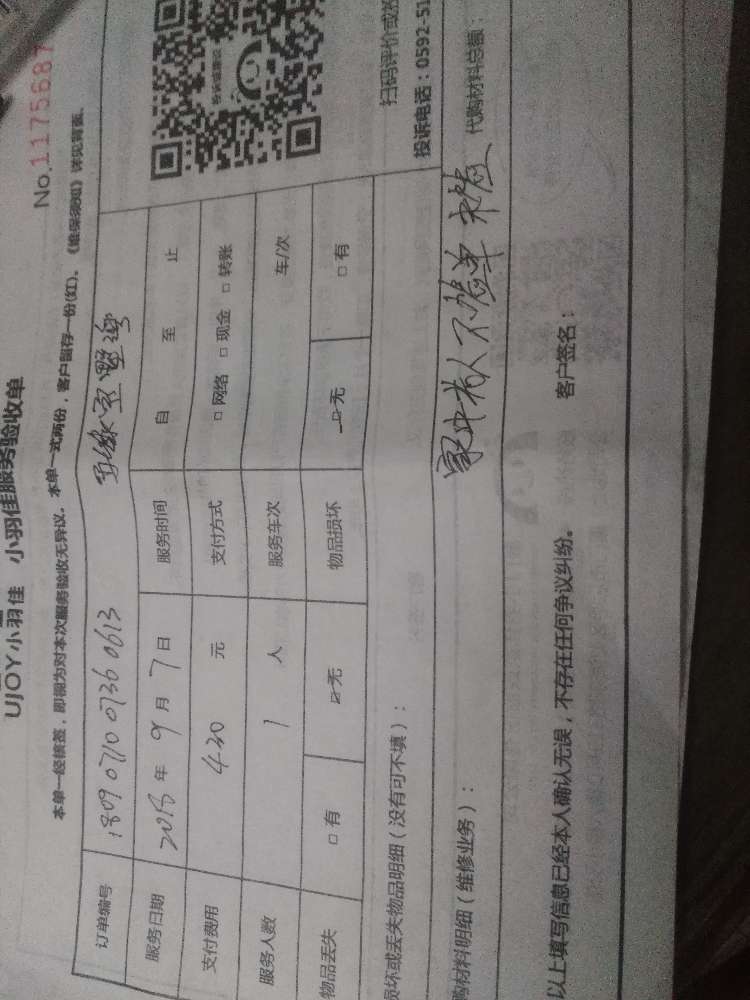 UJOY小羽佳 小羽佳服务验收单
No.1175687
本单一经核签，即视为对本次服务验收无异议。本单一式两份，客户留存一份(红)。《维保须知》详见背面。
订单编号 1809 0710 0736 0613
服务日期 2018 年 9 月 7 日 服务时间 自 至 止
支付费用 430 元 支付方式 □ 网络 □ 现金 □ 转账
服务人数 1 人 服务车次 车/次
物品丢失 □ 有 ☑ 无 物品损坏 ☑ 无 □ 有
损坏或丢失物品明细（没有可不填）：
扫码评价或
投诉电话：0592-51
购材料明细（维修业务）：
代购材料总额：
家中老人不签单
以上填写信息已经本人确认无误，不存在任何争议纠纷。 客户签名：